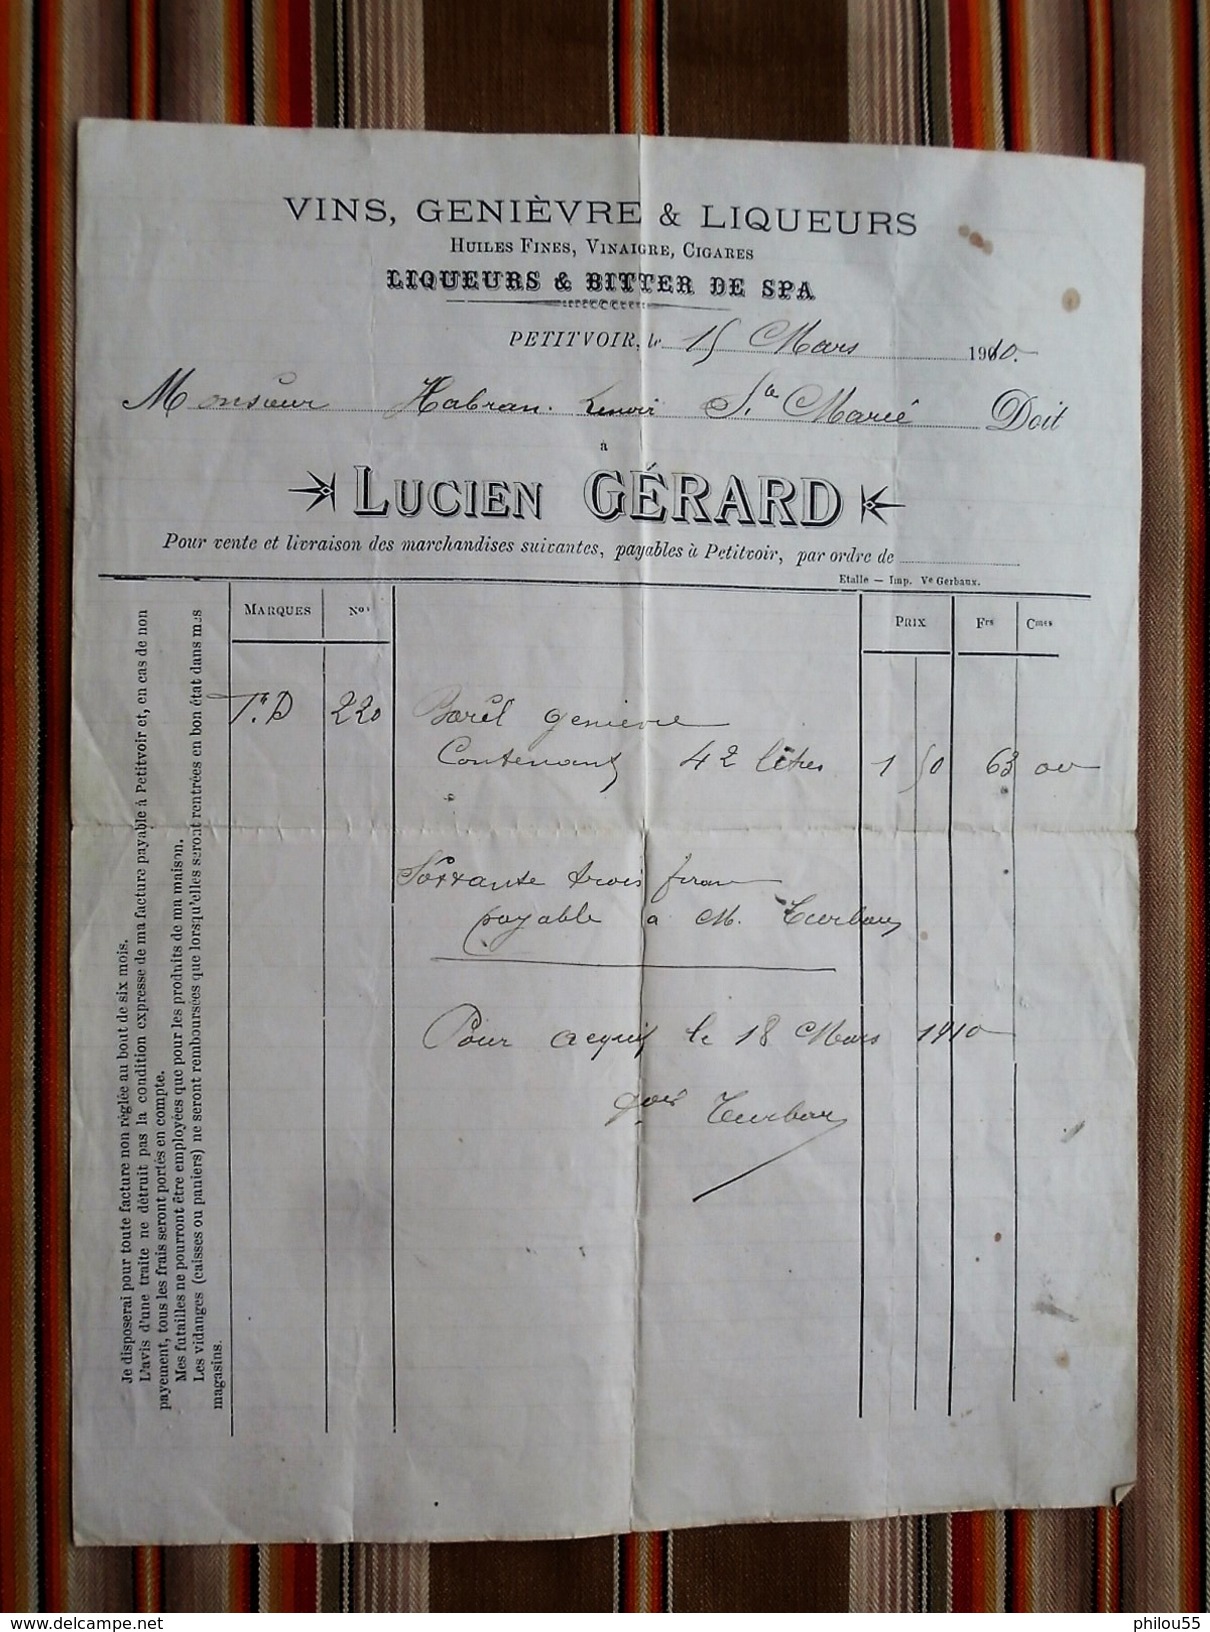 VINS, GENIÈVRE & LIQUEURS
HUILES FINES, VINAIGRE, CIGARES
LIQUEURS & BITTER DE SPA
PETITVOIR, le 15 Mars 1910.
Monsieur Habran. Lenoir Ste Marie Doit
à
LUCIEN GÉRARD
Pour vente et livraison des marchandises suivantes, payables à Petitvoir, par ordre de
Etalle — Imp. Ve Gerbaux.
MARQUES Nos PRIX Frs Cmes
220 Baril genievre
Contenant 42 litres 1 50 63 00
Soixante trois
payable a M.
Pour acquit le 18 Mars 1910
Je disposerai pour toute facture non réglée au bout de six mois.
L'avis d'une traite ne détruit pas la condition expresse de ma facture payable à Petitvoir et, en cas de non
payement, tous les frais seront portés en compte.
Mes futailles ne pourront être employées que pour les produits de ma maison.
Les vidanges (caisses ou paniers) ne seront remboursées que lorsqu'elles seront rentrées en bon état dans mes
magasins.
www.delcampe.net
philou55